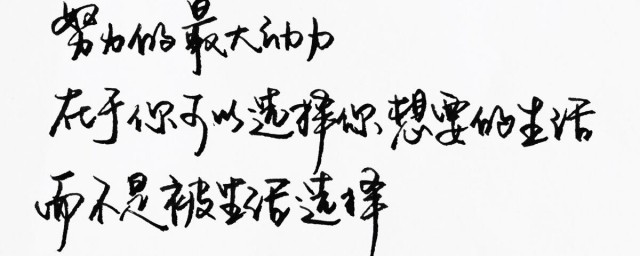 努力的最大动力
在于你可以选择你想要的生活
而不是被生活选择